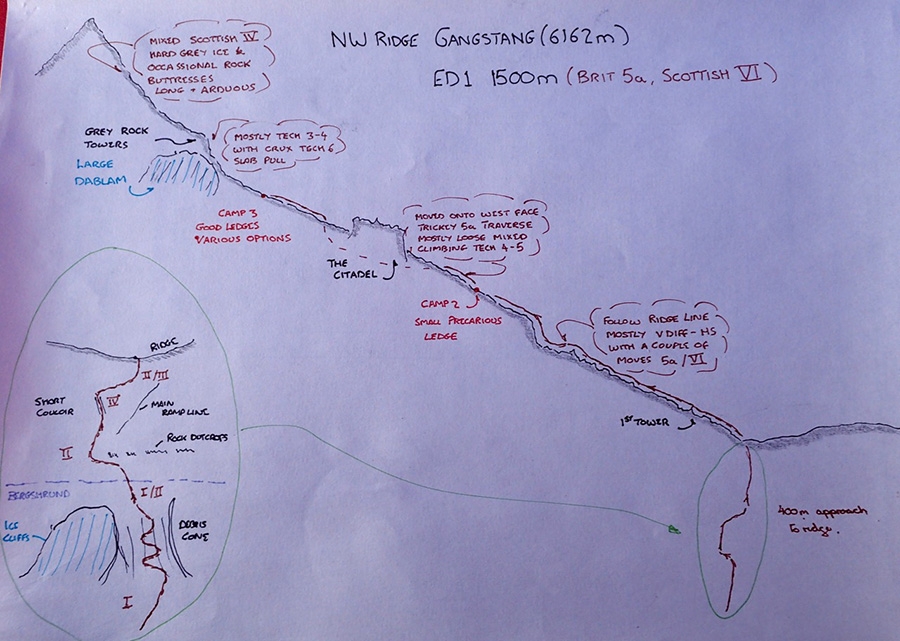 NW RIDGE GANGSTANG (6162m)
ED1 1500m (BRIT 5a, SCOTTISH VI)
MIXED SCOTTISH IV
HARD GREY ICE &
OCCASSIONAL ROCK
BUTTRESSES
LONG + ARDUOUS
GREY ROCK
TOWERS
MOSTLY TECH 3-4
WITH CRUX TECH 6
SLAB PULL
LARGE
DABLAM
CAMP 3
GOOD LEDGES
VARIOUS OPTIONS
MOVED ONTO WEST FACE
TRICKEY 5a TRAVERSE
MOSTLY LOOSE MIXED
CLIMBING TECH 4-5
THE
CITADEL
CAMP 2
SMALL PRICARIOUS
LEDGE
FOLLOW RIDGE LINE
MOSTLY VDIFF-HS
WITH A COUPLE OF
MOVES 5a/VI
1ST TOWER
400m approach
to ridge.
RIDGE
II/III
SHORT
COULOIR
IV
MAIN
RAMP LINE
ROCK OUTCROPS
II
BERGSHRUND
I/II
ICE
CLIFFS
DEBRIS
CONE
I